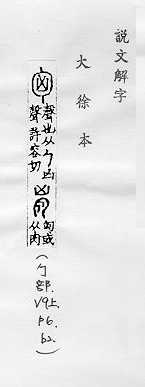 説文解字
大徐本
聲也从勹凶
聲許容切
匈或
从肉
(勹部. V9上. P6. b2.)